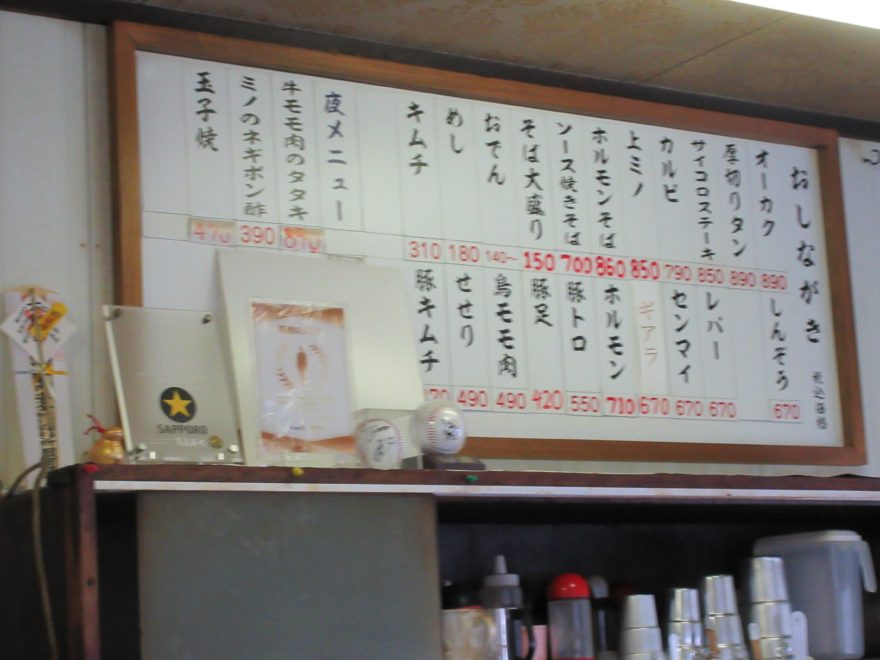 おしながき 税込価格
オーカク 890
厚切りタン 890
サイコロステーキ 850
カルビ 790
上ミノ 850
ホルモンそば 860
ソース焼きそば 700
そば大盛り 150
おでん 140~
めし 180
キムチ 310
夜メニュー
牛モモ肉のタタキ 870
ミノのネギポン酢 390
玉子焼 470
しんぞう 670
レバー 670
センマイ 670
ギアラ 670
ホルモン 710
豚トロ 550
豚足 420
鳥モモ肉 490
せせり 490
豚キムチ
SAPPORO